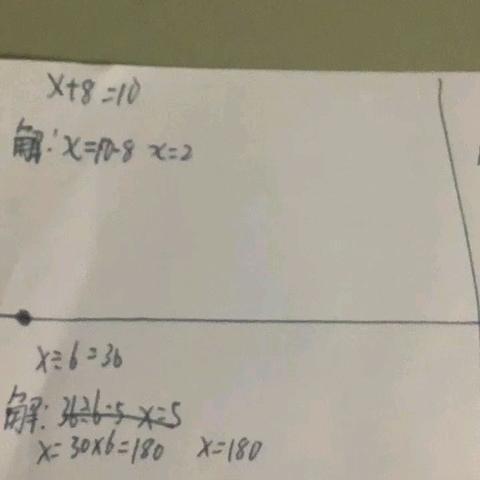 x+8=10
解:x=10-8 x=2
x÷6=30
解:30÷6=5 x=5
x=30×6=180 x=180